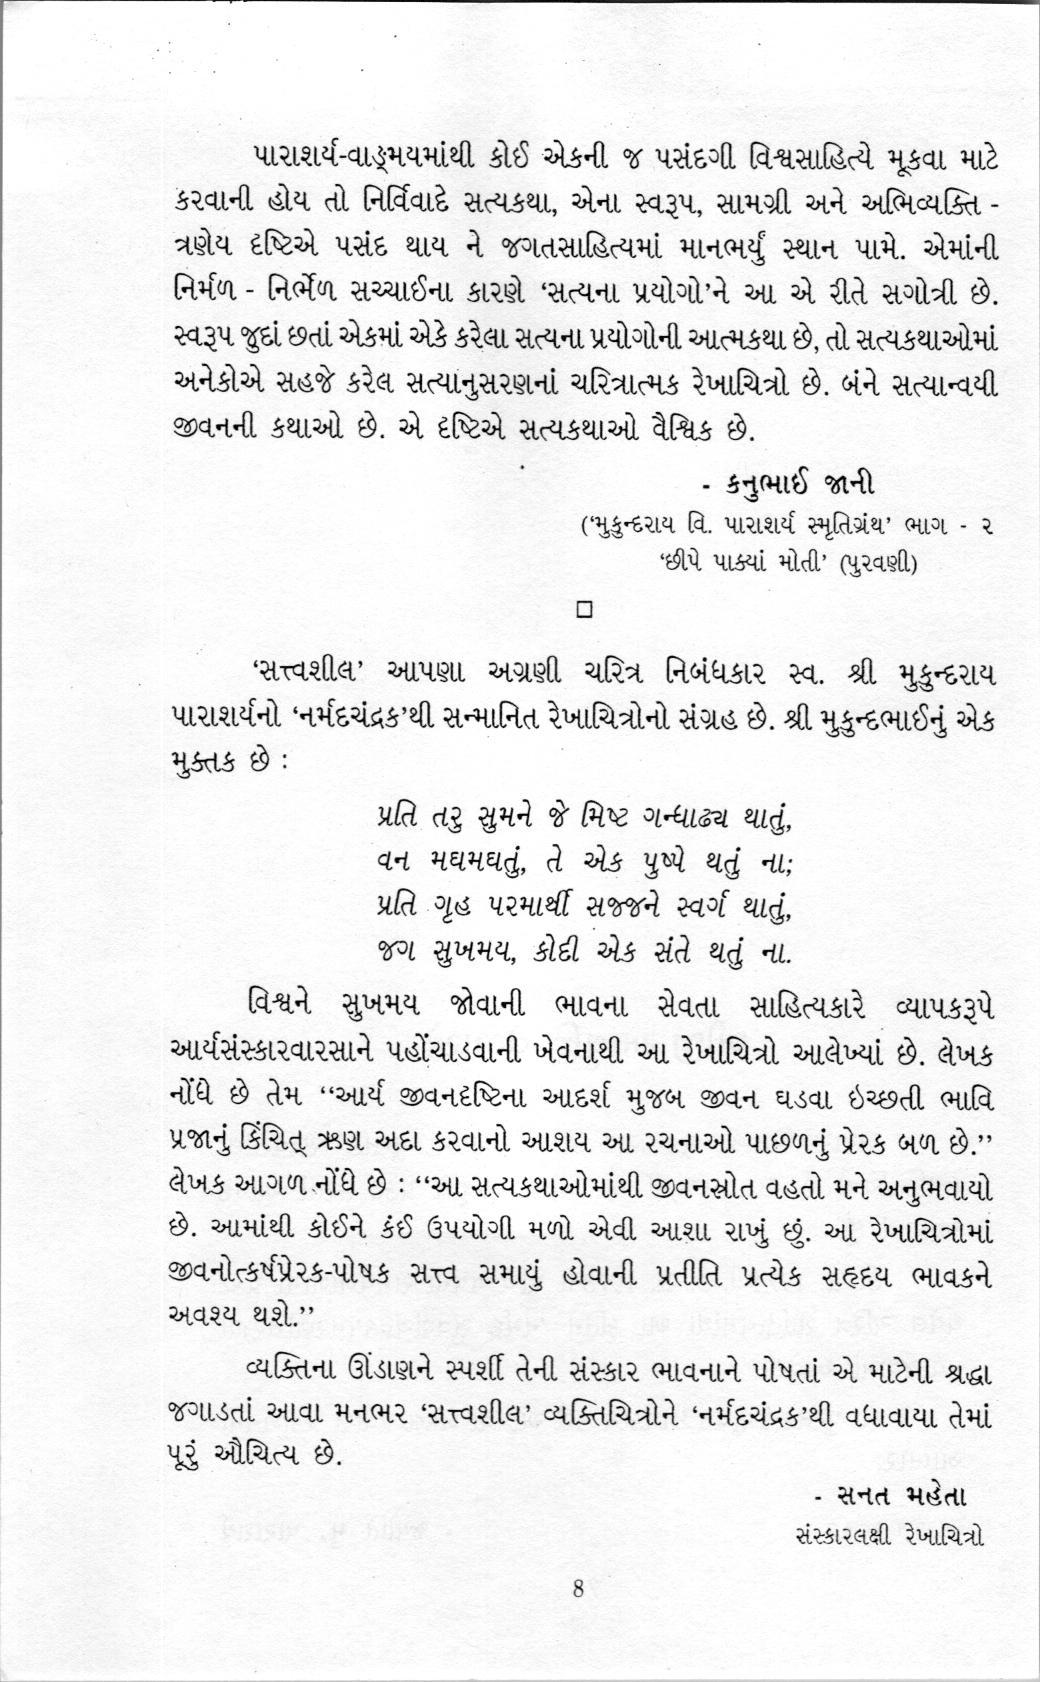 પારાશર્ય-વાઙ્મયમાંથી કોઈ એકની જ પસંદગી વિશ્વસાહિત્યે મૂકવા માટે
કરવાની હોય તો નિર્વિવાદે સત્યકથા, એના સ્વરૂપ, સામગ્રી અને અભિવ્યક્તિ -
ત્રણેય દૃષ્ટિએ પસંદ થાય ને જગતસાહિત્યમાં માનભર્યું સ્થાન પામે. એમાંની
નિર્મળ - નિર્ભેળ સચ્ચાઈના કારણે ‘સત્યના પ્રયોગો’ને આ એ રીતે સગોત્રી છે.
સ્વરૂપ જુદાં છતાં એકમાં એકે કરેલા સત્યના પ્રયોગોની આત્મકથા છે, તો સત્યકથાઓમાં
અનેકોએ સહજે કરેલ સત્યાનુસરણનાં ચરિત્રાત્મક રેખાચિત્રો છે. બંને સત્યાન્વયી
જીવનની કથાઓ છે. એ દૃષ્ટિએ સત્યકથાઓ વૈશ્વિક છે.
- કનુભાઈ જાની
(‘મુકુન્દરાય વિ. પારાશર્ય સ્મૃતિગ્રંથ’ ભાગ - ૨
‘છીપે પાક્યાં મોતી’ (પુરવણી)
‘સત્ત્વશીલ’ આપણા અગ્રણી ચરિત્ર નિબંધકાર સ્વ. શ્રી મુકુન્દરાય
પારાશર્યનો ‘નર્મદચંદ્રક’થી સન્માનિત રેખાચિત્રોનો સંગ્રહ છે. શ્રી મુકુન્દભાઈનું એક
મુક્તક છે :
પ્રતિ તરુ સુમને જે મિષ્ટ ગન્ધાઢ્ય થાતું,
વન મઘમઘતું, તે એક પુષ્પે થતું ના;
પ્રતિ ગૃહ પરમાર્થી સજ્જને સ્વર્ગ થાતું,
જગ સુખમય, કોદી એક સંતે થતું ના.
વિશ્વને સુખમય જોવાની ભાવના સેવતા સાહિત્યકારે વ્યાપકરૂપે
આર્યસંસ્કારવારસાને પહોંચાડવાની ખેવનાથી આ રેખાચિત્રો આલેખ્યાં છે. લેખક
નોંધે છે તેમ ‘‘આર્ય જીવનદૃષ્ટિના આદર્શ મુજબ જીવન ઘડવા ઇચ્છતી ભાવિ
પ્રજાનું કિંચિત્ ઋણ અદા કરવાનો આશય આ રચનાઓ પાછળનું પ્રેરક બળ છે.’’
લેખક આગળ નોંધે છે : ‘‘આ સત્યકથાઓમાંથી જીવનસ્રોત વહતો મને અનુભવાયો
છે. આમાંથી કોઈને કંઈ ઉપયોગી મળો એવી આશા રાખું છું. આ રેખાચિત્રોમાં
જીવનોત્કર્ષપ્રેરક-પોષક સત્ત્વ સમાયું હોવાની પ્રતીતિ પ્રત્યેક સહૃદય ભાવકને
અવશ્ય થશે.’’
વ્યક્તિના ઊંડાણને સ્પર્શી તેની સંસ્કાર ભાવનાને પોષતાં એ માટેની શ્રદ્ધા
જગાડતાં આવા મનભર ‘સત્ત્વશીલ’ વ્યક્તિચિત્રોને ‘નર્મદચંદ્રક’થી વધાવાયા તેમાં
પૂરું ઔચિત્ય છે.
- સનત મહેતા
સંસ્કારલક્ષી રેખાચિત્રો
8